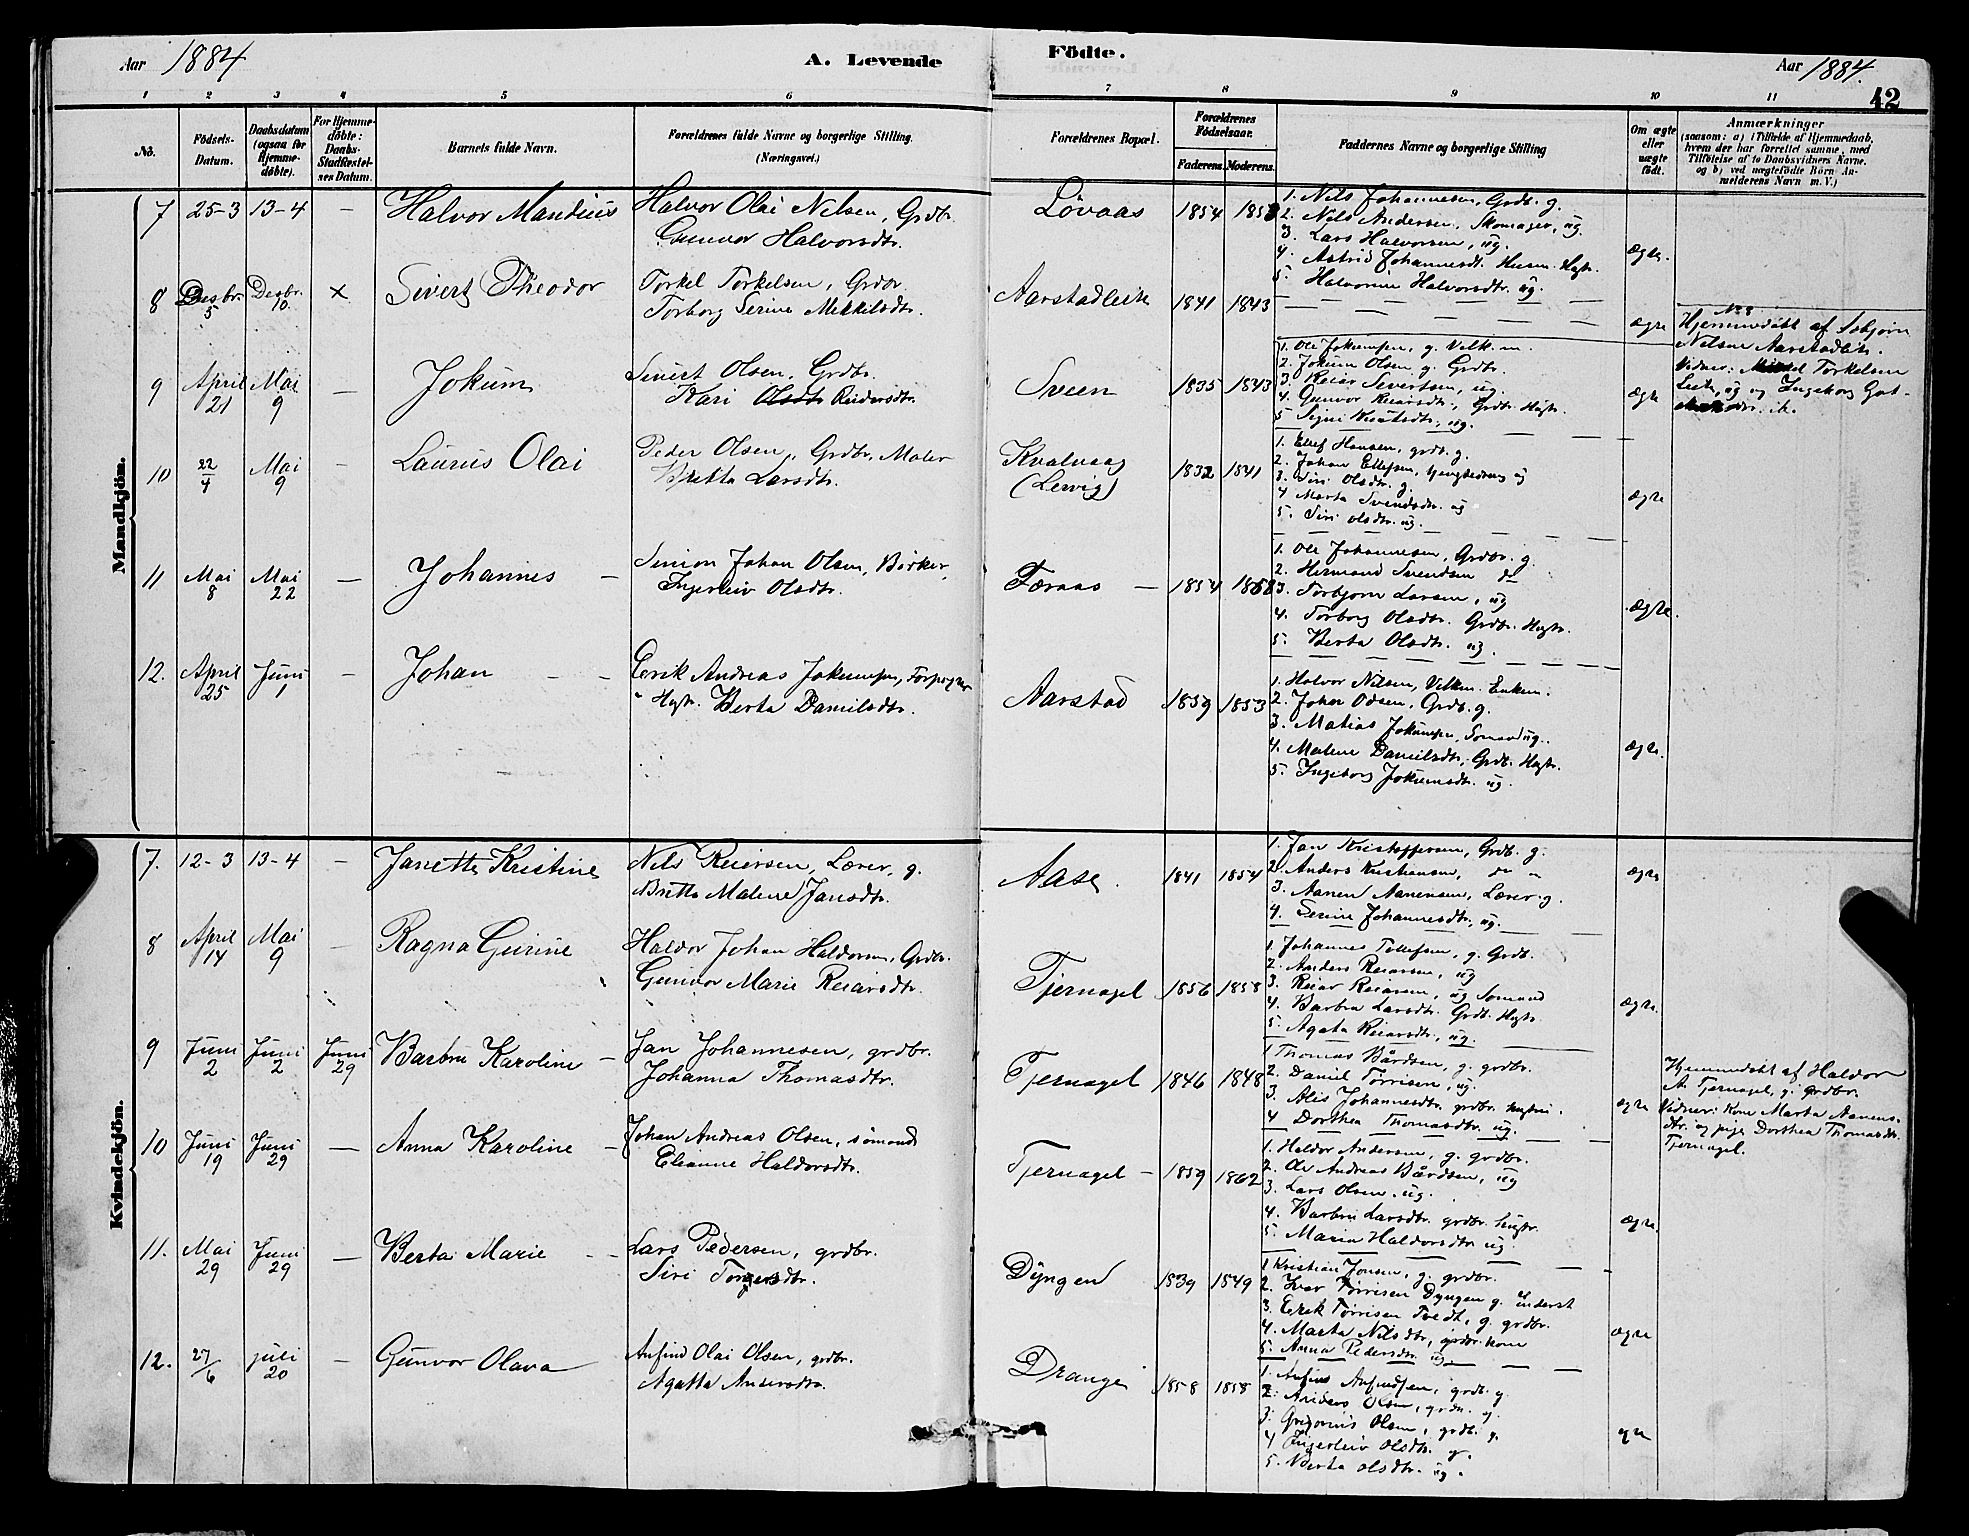 Aar 1884
A. Levende
Födte.
Aar 1884.
42
1 2 3 4 5 6 7 8 9 10 11
No.
Födsels-
Datum.
Daabsdatum
(ogsaa for
Hjemme-
döbte).
For Hjemme-
döbte:
Daabs-
Stadfæstel-
ses Datum.
Barnets fulde Navn.
Forældrenes fulde Navne og borgerlige Stilling.
(Næringsvei.)
Forældrenes Bopæl.
Forældrenes
Födselsaar.
Faderens. Moderens.
Faddernes Navne og borgerlige Stilling
Om ægte
eller
uægte
födt.
Anmærkninger
(saasom: a) i Tilfælde af Hjemmedaab,
hvem der har forrettet samme, med
Tilföielse af to Daabsvidners Navne.
og b) ved uægtefödte Börn An-
melderens Navn m. V.)
Mandkjön.
7 25-3 13-4 - Halvor Mandius
Halvor Olai Nelsen, Grdbr.
Gunvor Halvorsdtr.
Lövaas 1854 1858
1. Nils Johannesen, Grdb. g.
2. Nils Andersen, Skomager, ug.
3. Lars Halvorsen, ug.
4. Astrid Johannesdt. Husm. Hgtr.
5. Halvorine Halvorsdtr. ug.
ægte.
8 Desbr. 5 Desbr. 10 x Sivert Theodor
Torkel Torkelsen, Grdbr.
Torborg Serine Mikkelsdtr.
Aarstadleite 1841 1843
ægte
No 8
Hjemmedöbt af Asbjörn
Nelsen Aarstadleite.
Vidner: Torkelsen
Leite, ug og Ingeborg
9 April 21 Mai 9 - Jokum
Sivert Olsen, Grdbr.
Kari Olsdtr Reidersdtr.
Sveen 1835 1843
1. Ole Jokumsen, g. Velk. m.
2. Jokum Olsen g. Grdbr.
3. Reier Severtsen, ug.
4. Gunvor Reiarsdtr, Grdbr. Hgtr.
5. Signi Knutsdtr, ug.
ægte
10 22/4 Mai 9 - Laurus Olai
Peder Olsen, Grdbr, Maler
Britta Larsdtr.
Kvalvaag
(Lervig)
1832 1841
1. Ellef Hansen, grdb. g.
2. Johan Ellefsen, ug
3. Siri Olsdtr. g.
4 Marta Svendsdtr. ug
5. Siri olsdtr. ug.
ægte
11 Mai 8 Mai 22 - Johannes -
Simon Johan Olsen, Bödker,
Ingerleiv Olsdtr.
Færaas - 1854 1858
1. Ole Johannesen, Grdbr. g.
2. Hermand Svendsen do
3. Torbjörn Larsen, ug
4. Torborg Olsdtr. Grdbr. Hgtr.
5. Berta Olsdtr. ug.
ægte.
12. April 25 Juni 1 - Johan
Erik Andreas Jokumsen, Forpagter
" Hgtr. Berta Danielsdtr.
Aarstad 1859 1853
1. Halvor Nilsen, Velkm. Enkem.
2. Johan Odsen, Grdb. g.
3. Matias Jokumsen, Sömand ug.
4. Malene Danielsdtr, Grdb. Hgtr.
5. Ingeborg Jokumsdtr. ug
ægte.
Kvindekjön.
7. 12-3 13-4 - Janette Kristine
Nils Reiersen, Lærer, g.
Britte Malene Jansdtr.
Aase. 1841 1854
1. Jan Kristoffersen, Grdb. g.
2. Anders Kristiansen, do "
3. Aanen Aanensen, Lærer g.
4. Serine Johannesdtr. ug.
ægte
8 April 14 Mai 9 - Ragna Gurine
Haldor Johan Haldorsen, Grdbr.
Gunvor Marie Reiarsdtr.
Tjernagel 1856 1858
1. Johannes Tollefsen, g. Grdb.
2. Anders Reiarsen, ug
3. Reiar Reiarsen, ug Sömand
4. Barbra Larsdtr. Grdb. Hgtr.
5. Agata Reiarsdtr, ug.
ægte.
9 Juni 2 Juni 2 Juni 29 Barbru Karoline -
Jan Johannesen, grdbr.
Johanna Thomasdtr.
Tjernagel 1846 1848
1 Thomas Bårdsen, g. grdbr.
2. Daniel Törrisen, ug.
3. Alis Johannesdtr. grdbr. hugtru.
4 Dorthea Thomasdtr. ug.
ægte
Hjemmedöbt af Haldor
A. Tjernagel, g. grdbr.
Vidner: Kone Marta Aanens-
dtr. og pige Dorthea Thomasdtr.
Tjernagel.
10 Juni 19 Juni 29 - Anna Karoline -
Johan Andreas Olsen, sömand
Elianne Haldorsdtr.
Tjernagel - 1859 1862
1. Haldor Andersen, g. grdbr.
2. Ole Andreas Bårdsen, ug
3. Lars Olsen. ug.
4. Barbru Larsdtr. grdbr. hugtr.
5. Maria Haldorsdtr ug.
ægte.
11. Mai 29 Juni 29 - Berta Marie -
Lars Pedersen, grdbr.
Siri Torgersdtr.
Dyngen 1839 1849
1 Kristian Jonsen, g. grdbr.
2. Ivar Törrisen Dyngen g. inderst
3. Erek Törrisen Tvedt, g. grdbr.
4. Marta Nilsdtr, grdbr. kone
5. Anna Pedersdtr ug.
ægte
12. 27/6 juli 20 - Gunvor Olava
Anfind Olai Olsen, grdbr.
Agatha Andersdtr.
Drange 1858 1858
1. Anfind Anfindsen, grdb. g.
2. Anders Olsen, grdb. g.
3. Gregorius Olsen, grdb. g.
4 Ingerleiv Olsdtr. g.
5. Berta olsdtr. ug.
ægte